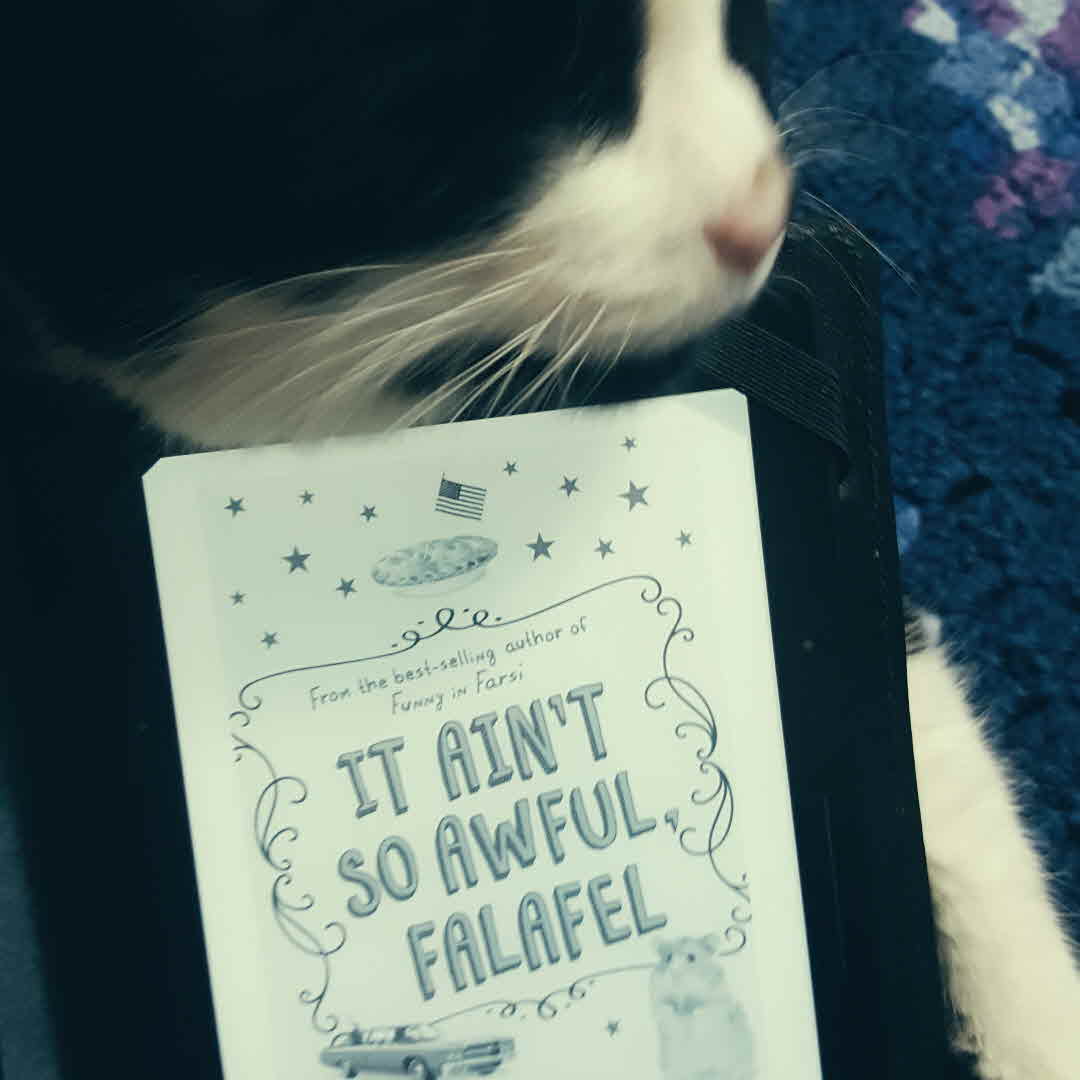 From the best-selling author of
Funny in Farsi
IT AIN'T
SO AWFUL,
FALAFEL